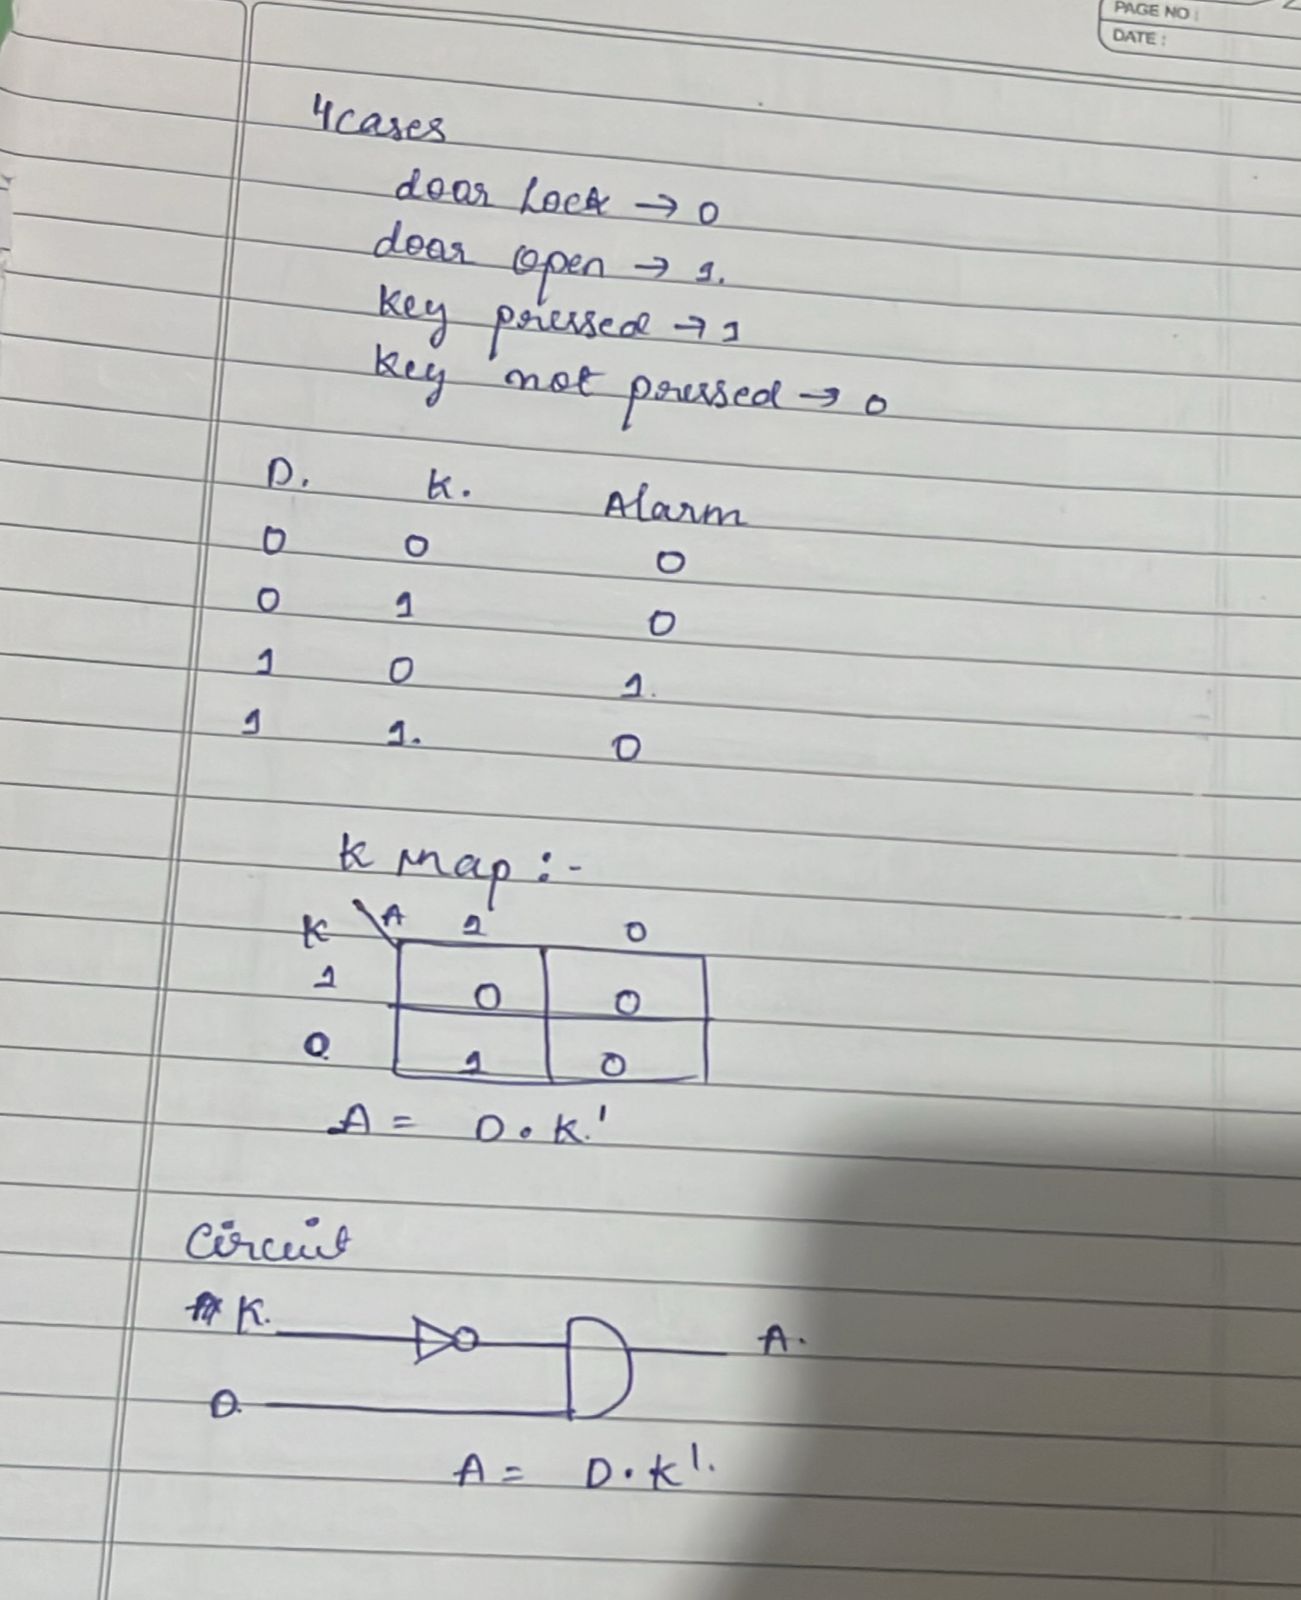 PAGE NO :
DATE :
4 cases
door Lock → 0
door open → 1.
key pressed → 1
key not pressed → 0
D. K. Alarm
0 0 0
0 1 0
1 0 1.
1 1. 0
K map :-
K \ A 1 0
1 0 0
0 1 0
A = D . K.'
Circuit
K. A.
D
A = D . K'.